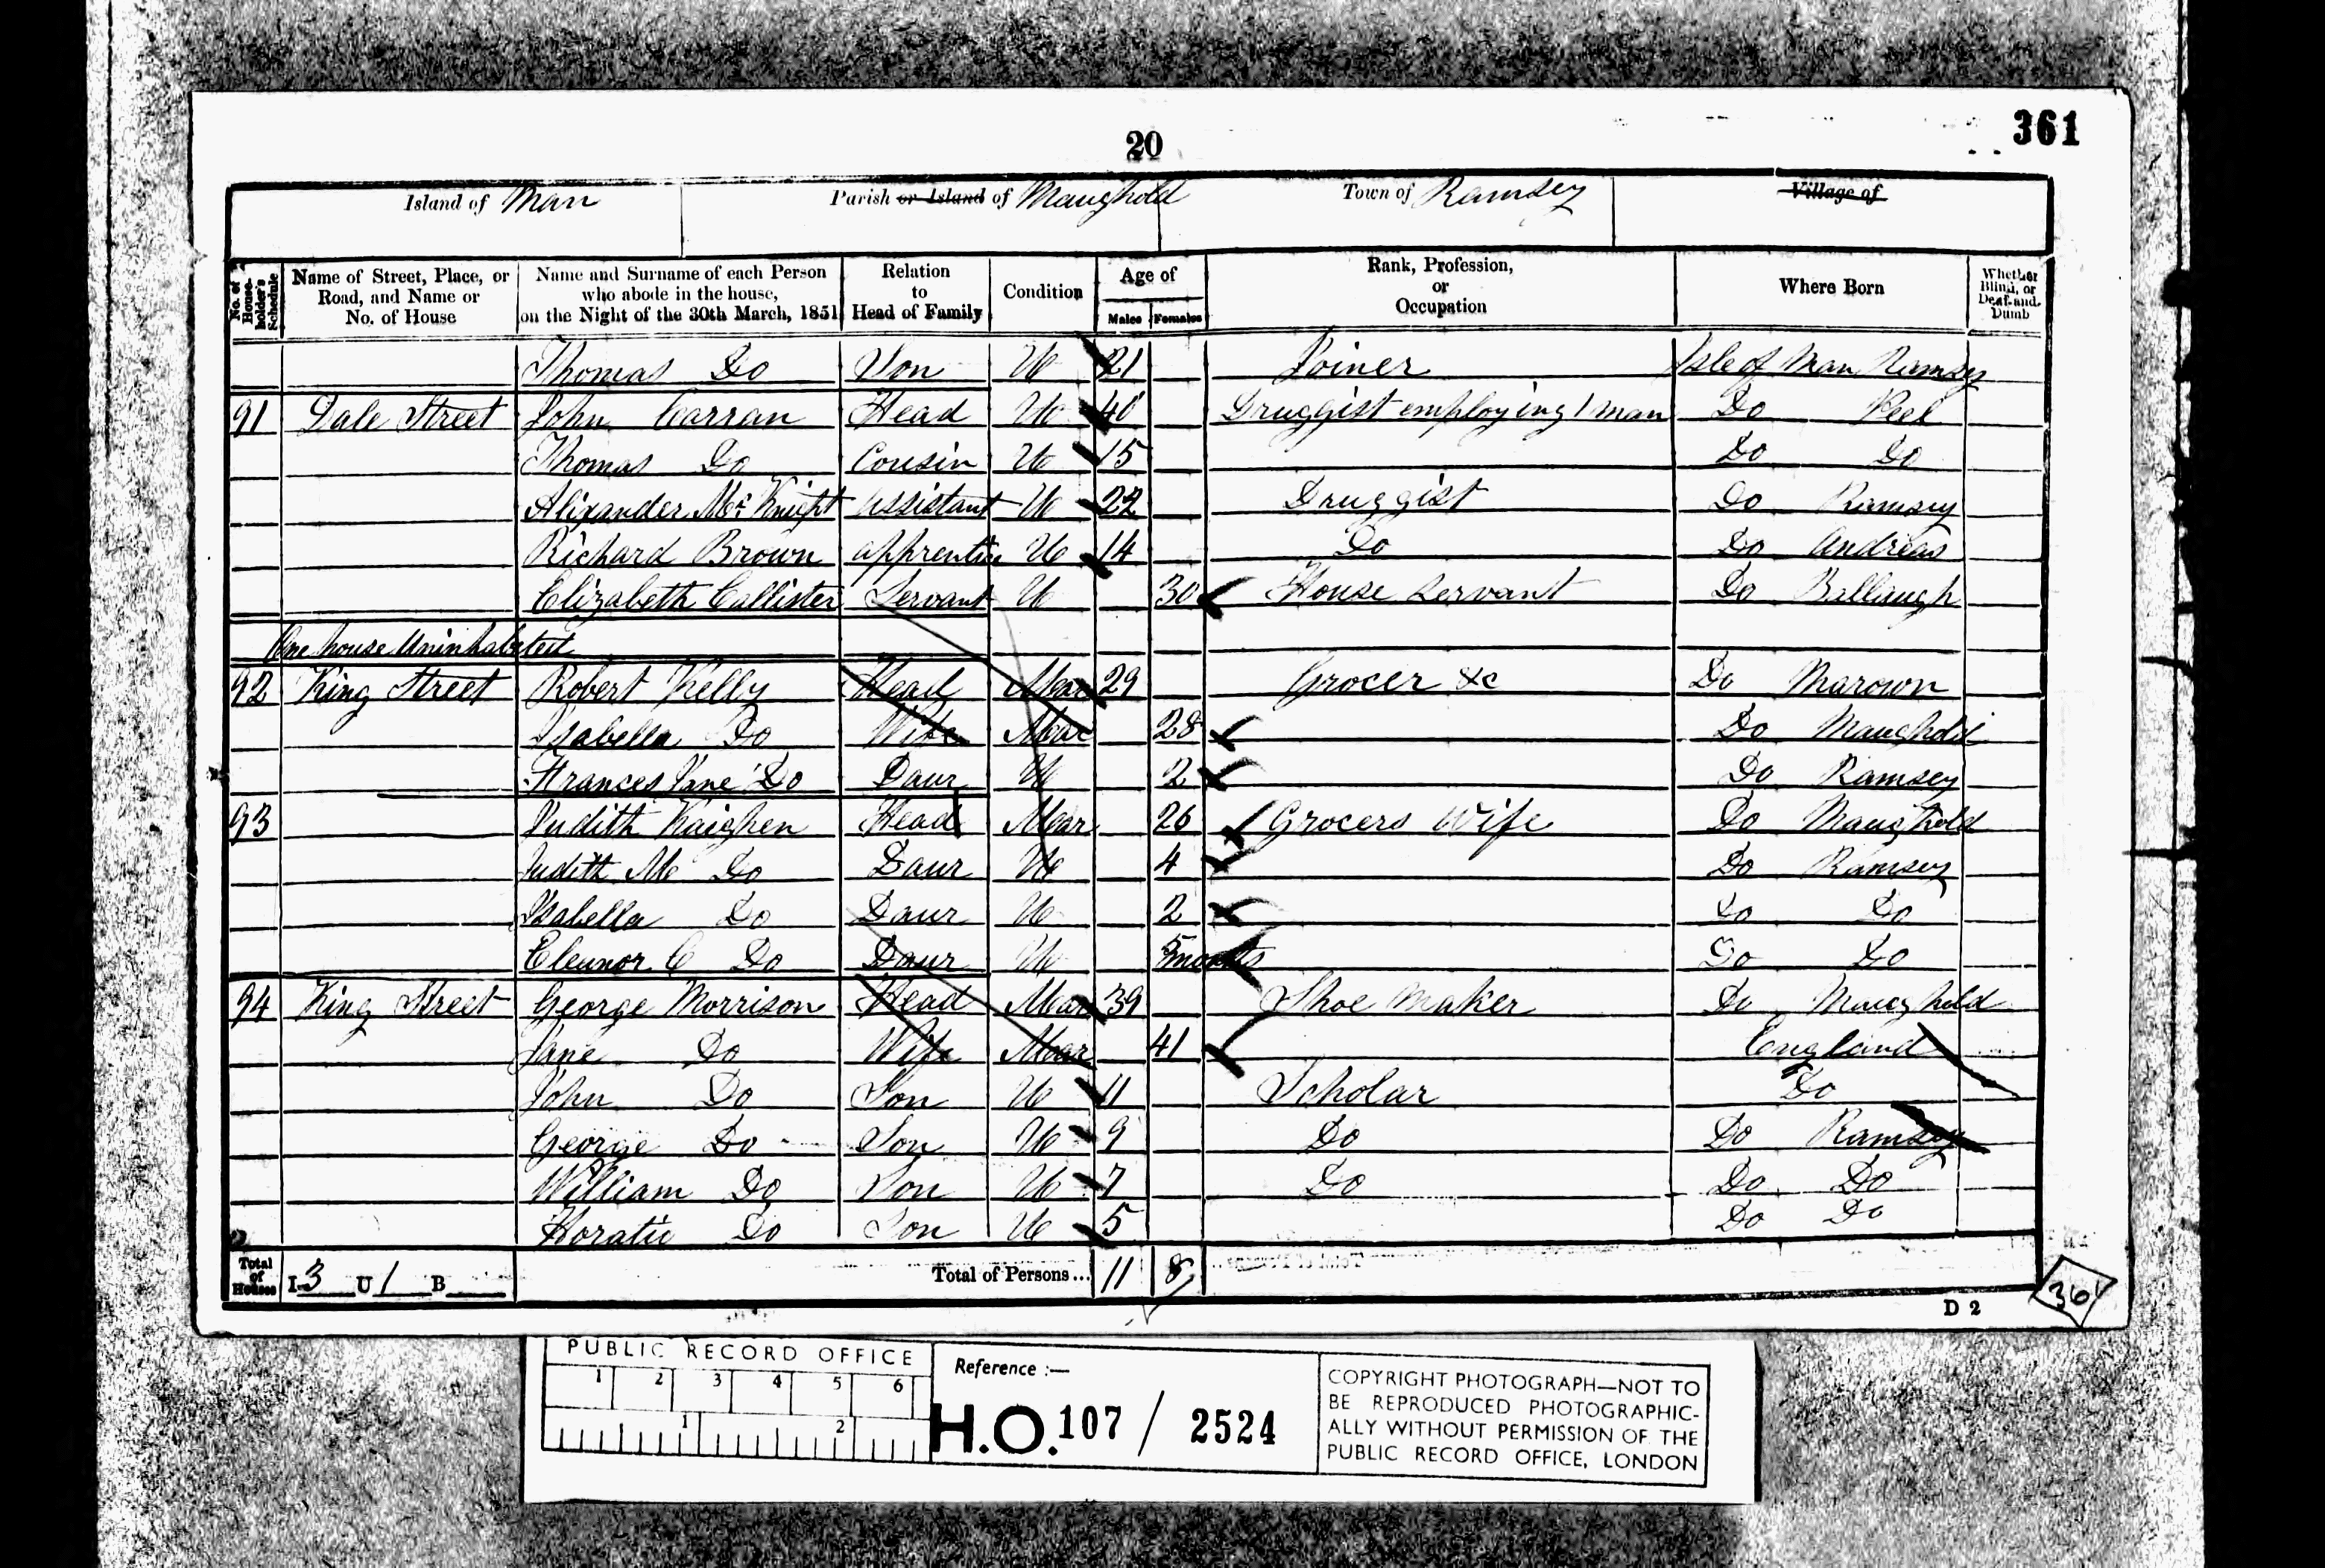 361
20
Island of Man Parish or Island of Maughold Town of Ramsey Village of
No. of House-holder's Schedule
Name of Street, Place, or Road, and Name or No. of House
Name and Surname of each Person who abode in the house, on the Night of the 30th March, 1851
Relation to Head of Family
Condition
Age of
Males Females
Rank, Profession, or Occupation
Where Born
Whether Blind, or Deaf-and-Dumb
Thomas Do Son U 21 Joiner Isle of Man Ramsey
91 Dale Street John Carran Head U 40 Druggist employing 1 man Do Peel
Thomas Do Cousin U 15 Do Do
Alixander Mc Knight assistant U 22 Druggist Do Ramsey
Richard Brown apprentice U 14 Do Do Andreas
Elizabeth Callister Servant U 30 House Servant Do Ballaugh
One house Uninhabited
92 King Street Robert Kelly Head Mar 29 Grocer &c Do Marown
Isabella Do Wife Mar 28 Do Maughold
Frances Jane Do Daur U 2 Do Ramsey
93 Judith Kaighen Head Mar 26 Grocers Wife Do Maughold
Judith M Do Daur U 4 Do Ramsey
Isabella Do Daur U 2 Do Do
Eleunor C Do Daur U months Do Do
94 King Street George Morrison Head Mar 39 Shoe Maker Do Maughold
Jane Do Wife Mar 41 England
John Do Son U 11 Scholar Do
George Do Son U 9 Do Do Ramsey
William Do Son U 7 Do Do Do
Horatio Do Son U 5 Do Do
Total of Houses I 3 U 1 B Total of Persons... 11 8
D 2
PUBLIC RECORD OFFICE
1 2 3 4 5 6
1 2
Reference :—
H.O. 107 / 2524
COPYRIGHT PHOTOGRAPH—NOT TO
BE REPRODUCED PHOTOGRAPHIC-
ALLY WITHOUT PERMISSION OF THE
PUBLIC RECORD OFFICE, LONDON